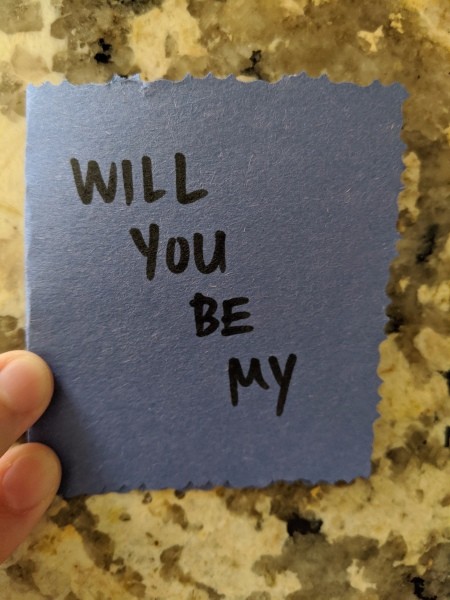 WILL
YOU
BE
MY